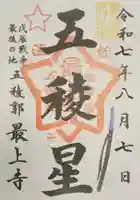 令和七年八月七日
五稜星
戊辰戦争
最後の地
五稜郭
最上寺